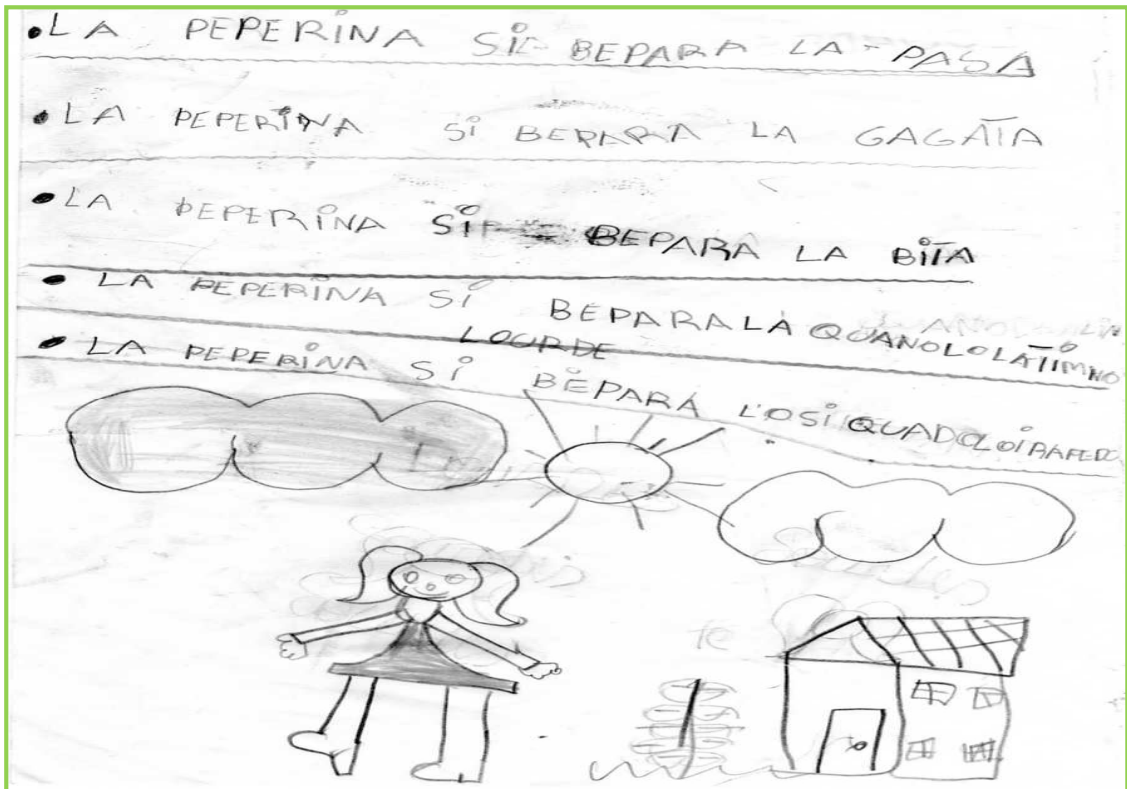 • LA PEPERINA SI BEPARA LA PASA
• LA PEPERINA SI BEPARA LA GAGATA
• LA PEPERINA SI BEPARA LA BITA
• LA PEPERINA SI BEPARALA QUANOLOLATIMNO
LOURDE
• LA PEPERINA SI BEPARA LOSI QUADOLOIRAFEDO
te